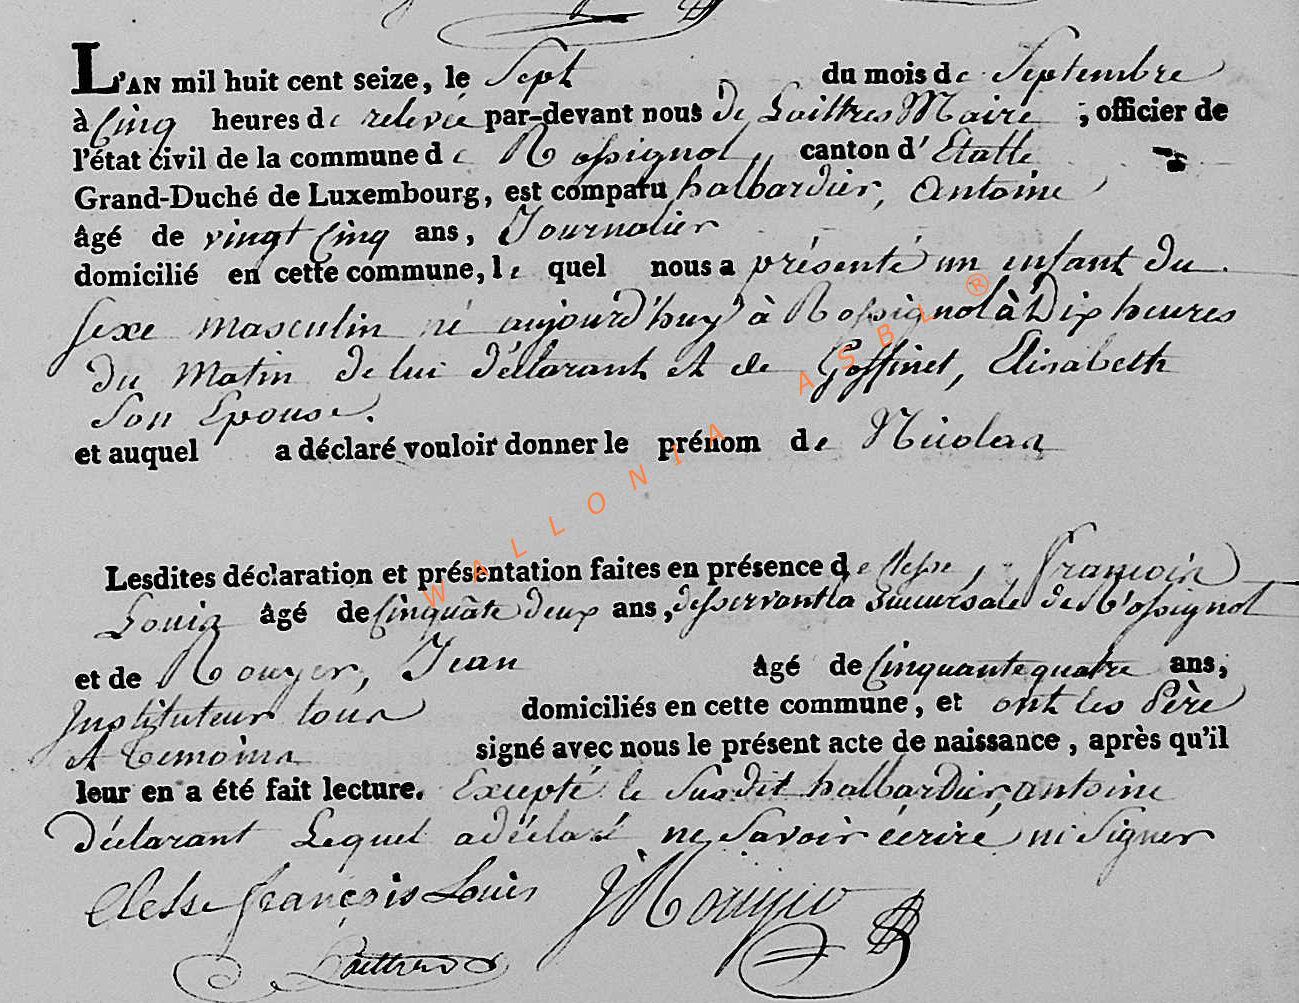 L'AN mil huit cent seize, le Sept du mois de Septembre
à Cinq heures de relevée par-devant nous de Laittres Maire, officier de
l'état civil de la commune de Rossignol, canton d'Etalle
Grand-Duché de Luxembourg, est comparu halbardier, Antoine
âgé de vingt Cinq ans, Journalier
domicilié en cette commune, le quel nous a présenté un enfant du
sexe masculin né aujourd'huy à Rossignol à Dix heures
du Matin de lui déclarant et de Goffinet, Elisabeth
Son Epouse.
et auquel a déclaré vouloir donner le prénom de Nicolas
WALLONIA ASBL ®
Lesdites déclaration et présentation faites en présence de Clesse, François
Louis âgé de Cinquãte deux ans, desservant la Succursale de Rossignol
et de Rouyer, Jean âgé de Cinquante quatre ans,
Instituteur tous domiciliés en cette commune, et ont les Père
et temoins signé avec nous le présent acte de naissance, après qu'il
leur en a été fait lecture. Excepté le Susdit halbardier, antoine
déclarant Lequel a déclaré ne Savoir écrire ni Signer
Clesse françois Louis JRouyer